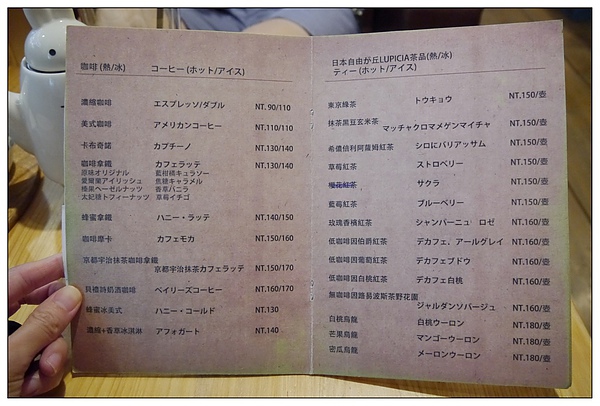 咖啡 (熱/冰) コーヒー (ホット/アイス)
濃縮咖啡 エスプレッソ/ダブル NT. 90/110
美式咖啡 アメリカンコーヒー NT.110/110
卡布奇諾 カプチーノ NT.130/140
咖啡拿鐵 カフェラッテ NT.130/140
原味オリジナル 藍柑橘キュラソー
愛爾蘭アイリッシュ 焦糖キャラメル
榛果ヘーゼルナッツ 香草バニラ
太妃糖トフィーナッツ 草莓イチゴ
蜂蜜拿鐵 ハニー・ラッテ NT.140/150
咖啡摩卡 カフェモカ NT.150/160
京都宇治抹茶咖啡拿鐵
京都宇治抹茶カフェラッテ NT.150/170
貝禮詩奶酒咖啡 ベイリーズコーヒー NT.160/170
蜂蜜冰美式 ハニー・コールド NT.130
濃縮+香草冰淇淋 アフォガート NT.140
日本自由が丘LUPICIA茶品(熱/冰)
ティー (ホット/アイス)
東京綠茶 トウキョウ NT.150/壺
抹茶黑豆玄米茶
マッチャクロマメゲンマイチャ NT.150/壺
希儂倍利阿薩姆紅茶 シロニバリアッサム NT.150/壺
草莓紅茶 ストロベリー NT.150/壺
櫻花紅茶 サクラ NT.150/壺
藍莓紅茶 ブルーベリー NT.150/壺
玫瑰香檳紅茶 シャンパーニュ ロゼ NT.160/壺
低咖啡因伯爵紅茶 デカフェ、アールグレイ NT.160/壺
低咖啡因葡萄紅茶 デカフェブドウ NT.160/壺
低咖啡因白桃紅茶 デカフェ白桃 NT.160/壺
無咖啡因路易波斯茶野花園
ジャルダンソバージュ NT.160/壺
白桃烏龍 白桃ウーロン NT.180/壺
芒果烏龍 マンゴーウーロン NT.180/壺
蜜瓜烏龍 メーロンウーロン NT.180/壺